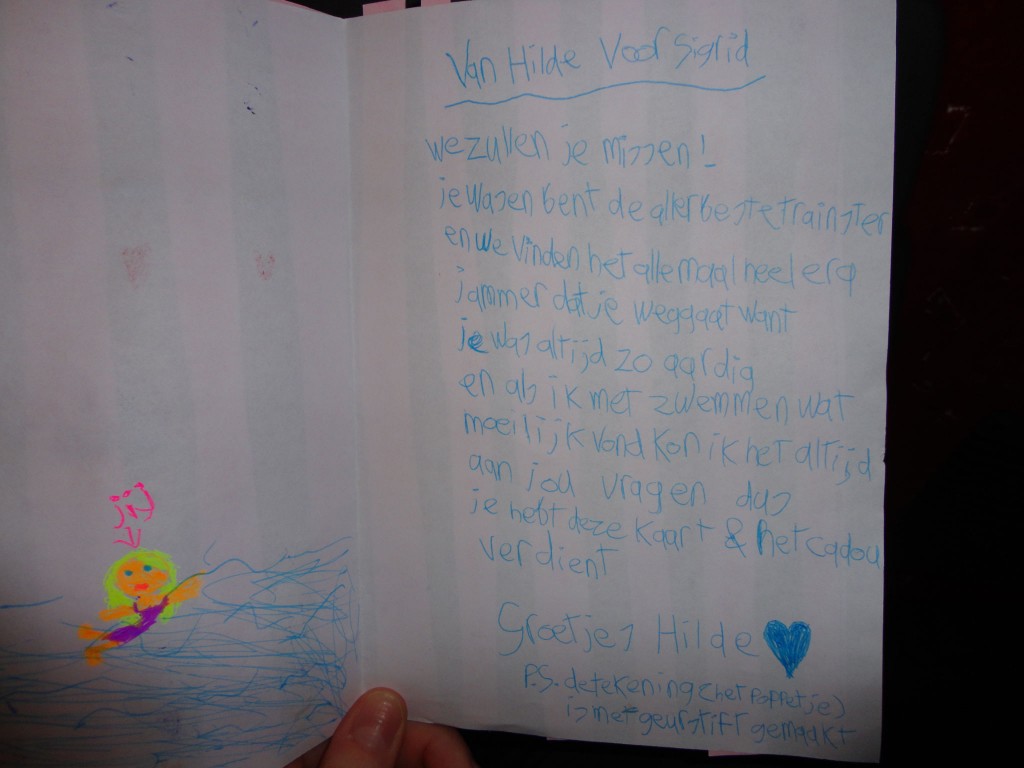 Van Hilde Voor Sigrid
we zullen je missen!
je wasen bent de aller beste trainster
en we vinden het allemaal heel erg
jammer dat je weggaat want
je was altijd zo aardig
en als ik met zwemmen wat
moeilijk vond kon ik het altijd
aan jou vragen dus
je hebt deze kaart & het cadou
verdient
Groetjes Hilde
P.S. de tekening (het poppetje)
is met geurstift gemaakt
jij